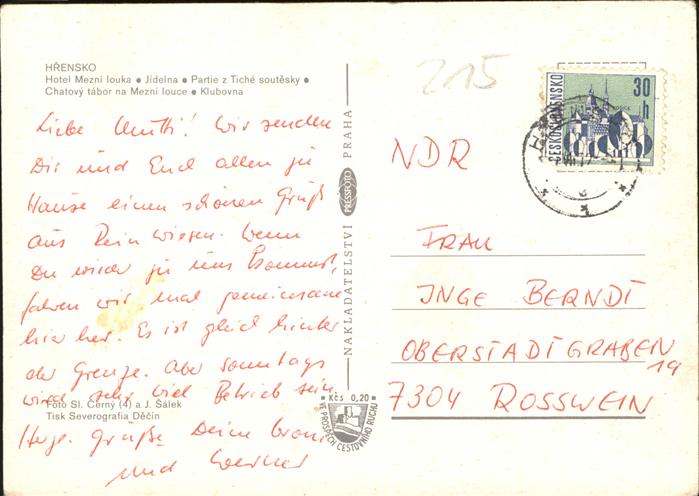 HŘENSKO
Hotel Mezní louka ● Jídelna ● Partie z Tiché soutěsky ●
Chatový tábor na Mezní louce ● Klubovna
Liebe Mutti! Wir senden
Dir und Euch allen zu
Hause einen schönen Gruß
aus Rainwiesen. Wenn
Du wieder zu uns kommst,
fahren wir mal gemeinsam
hier her. Es ist gleich hinter
der Grenze. Aber sonntags
wird sehr viel Betrieb sein.
Herzl. Grüße Deine
und Werner
Foto Sl. Černý (4) a J. Šálek
Tisk Severografia Děčín
NAKLADATELSTVÍ PRESSFOTO PRAHA
Kčs 0,20
VE PROSPĚCH CESTOVNÍHO RUCHU
215
ČESKOSLOVENSKO
30 h
NDR
FRAU
INGE BERNDT
OBERSTADTGRABEN 19
7304 ROSSWEIN